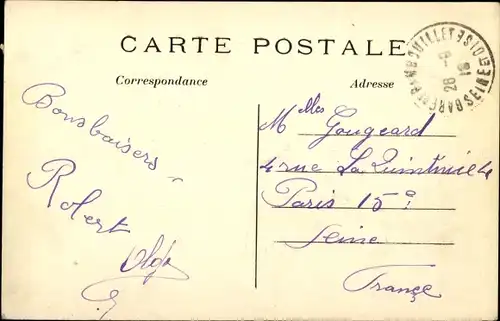 CARTE POSTALE
Correspondance
Adresse
Bons baisers
Robert
Olga
Mlles Gougeard
4 rue La Quintinie 4
Paris 15e
Seine
France
RAMBOUILLET SEINE ET OISE
28